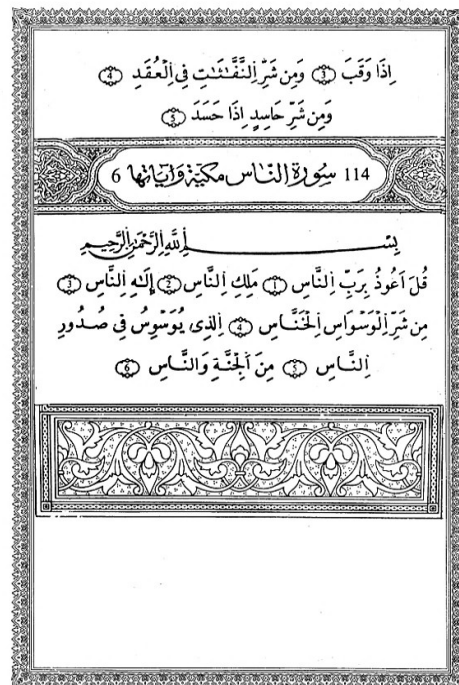 إِذَا وَقَبَ ③ وَمِن شَرِّ اِ۬لنَّفَّٰثَٰتِ فِے اِ۬لْعُقَدِ ④
وَمِن شَرِّ حَاسِدٍ اِذَا حَسَدَ ⑤
114 سُورَةُ النَّاسِ مَكِّيَّة وَءَايَاتُهَا 6
بِسْمِ اِ۬للَّهِ اِ۬لرَّحْمَٰنِ اِ۬لرَّحِيمِ
قُلَ اَعُوذُ بِرَبِّ اِ۬لنَّاسِ ① مَلِكِ اِ۬لنَّاسِ ② إِلَٰهِ اِ۬لنَّاسِ ③
مِن شَرِّ اِ۬لْوَسْوَاسِ اِ۬لْخَنَّاسِ ④ اِ۬لذِے يُوَسْوِسُ فِے صُدُورِ
اِ۬لنَّاسِ ⑤ مِنَ اَ۬لْجِنَّةِ وَالنَّاسِ ⑥